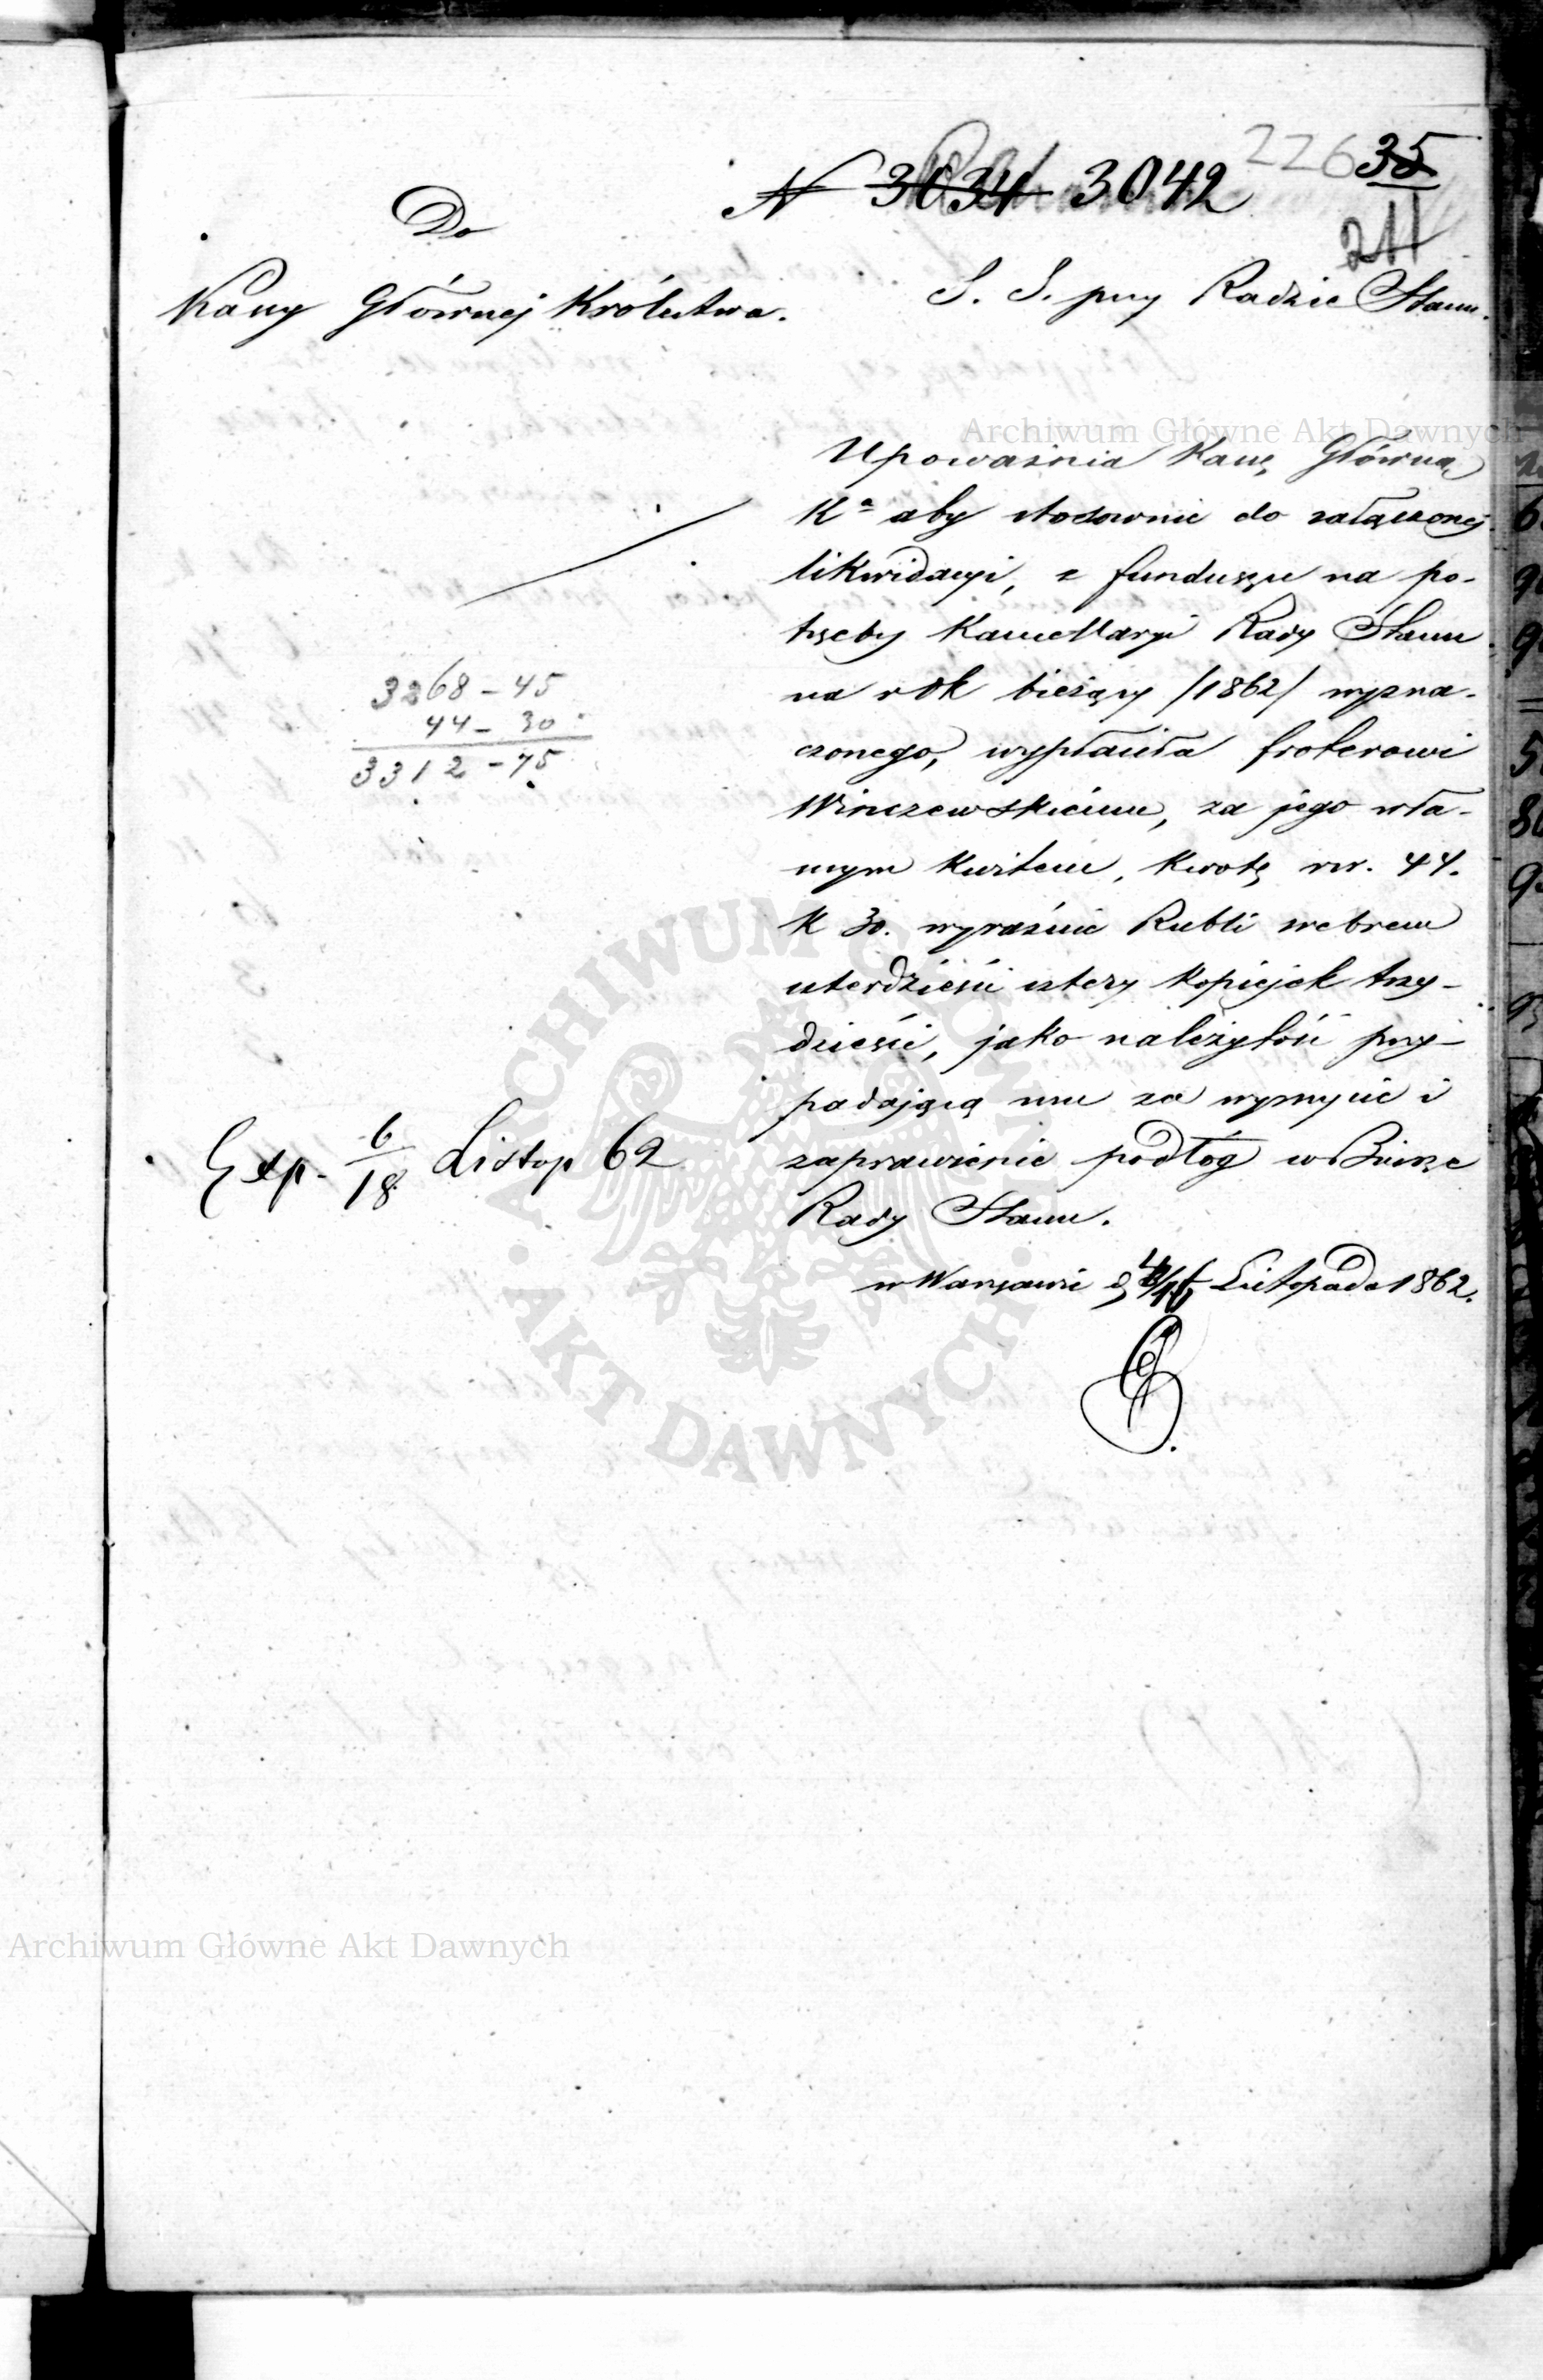 226 35
N 3034 3042
211
Do
Kassy Głównej Królestwa.
S. S. przy Radzie Stanu.
Upoważnia Kassę Główną
Kª aby stosownie do załączonej
likwidacyi, z funduszu na po-
trzeby Kancellaryi Rady Stanu
na rok bieżący /1862/ wyzna-
czonego, wypłaciła froterowi
Winczewskiemu, za jego wła-
snym kwitem, kwotę rsr. 44.
k 30. wyraźnie Rubli srebrem
czterdzieści cztery kopiejek trzy-
dzieści, jako należytość przy-
padającą mu za wymycie i
zaprawienie podłóg w Biurze
Rady Stanu.
w Warszawie d Listopada 1862.
3268 - 45
44 - 30
3312 - 75
Exp. 6/18 Listop 62
Archiwum Główne Akt Dawnych
ARCHIWUM GŁÓWNE
AKT DAWNYCH
Archiwum Główne Akt Dawnych